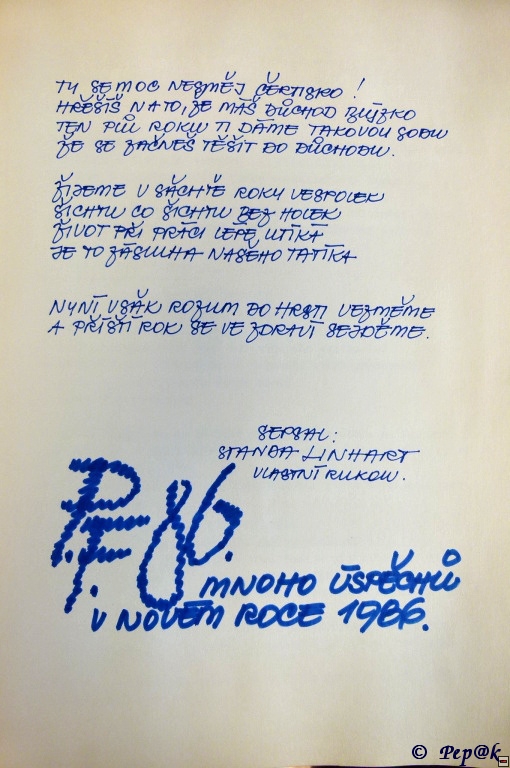 TY SE MOC NESMĚJ ČERTISKO!
HŘEŠÍŠ NA TO, ŽE MÁŠ DŮCHOD BLÍZKO
TEN PŮL ROKU TI DÁME TAKOVOU SODU
ŽE SE ZAČNEŠ TĚŠIT DO DŮCHODU.
ŽIJEME V ŠACHTĚ ROKY VESPOLEK
ŠICHTU CO ŠICHTU BEZ HOLEK
ŽIVOT PŘI PRÁCI LÉPE UTÍKÁ
JE TO ZÁSLUHA NAŠEHO TATÍKA
NYNÍ VŠAK ROZUM DO HRSTI VEZMĚME
A PŘÍŠTÍ ROK SE VE ZDRAVÍ SEJDĚME.
SEPSAL:
STANDA LINHART
VLASTNÍ RUKOU.
P.F. 86.
MNOHO ÚSPĚCHŮ
V NOVÉM ROCE 1986.
© Pep@k